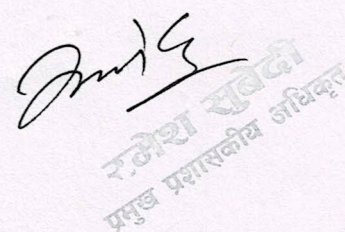 रमेश सुवेदी
प्रमुख प्रशासकीय अधिकृत